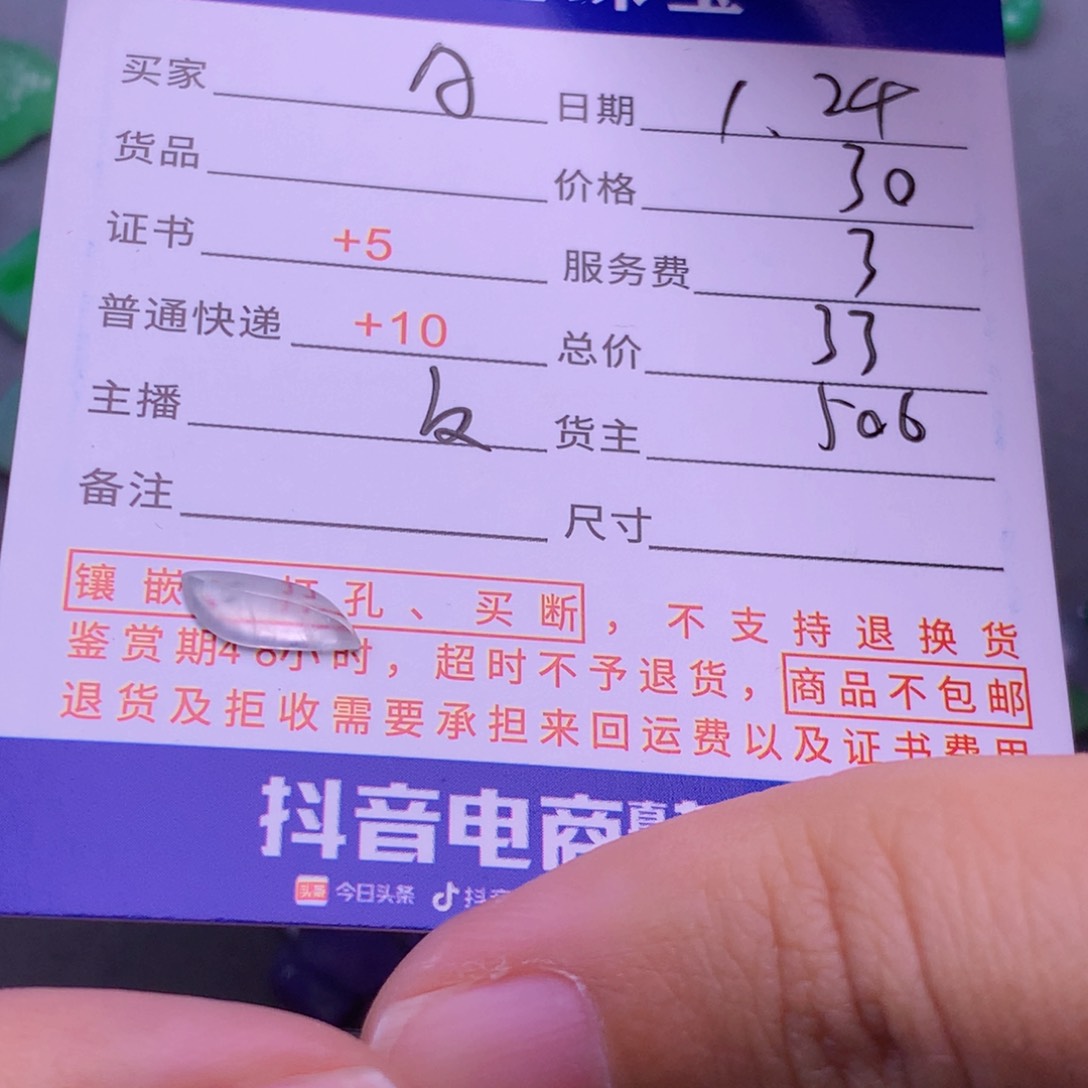 买家 日期 1、24
货品 价格 30
证书 +5 服务费 3
普通快递 +10 总价 33
主播 货主 506
备注 尺寸
镶嵌 打孔、买断，不支持退换货
鉴赏期48小时，超时不予退货，商品不包邮
退货及拒收需要承担来回运费以及证书费用
抖音电商
今日头条 抖音